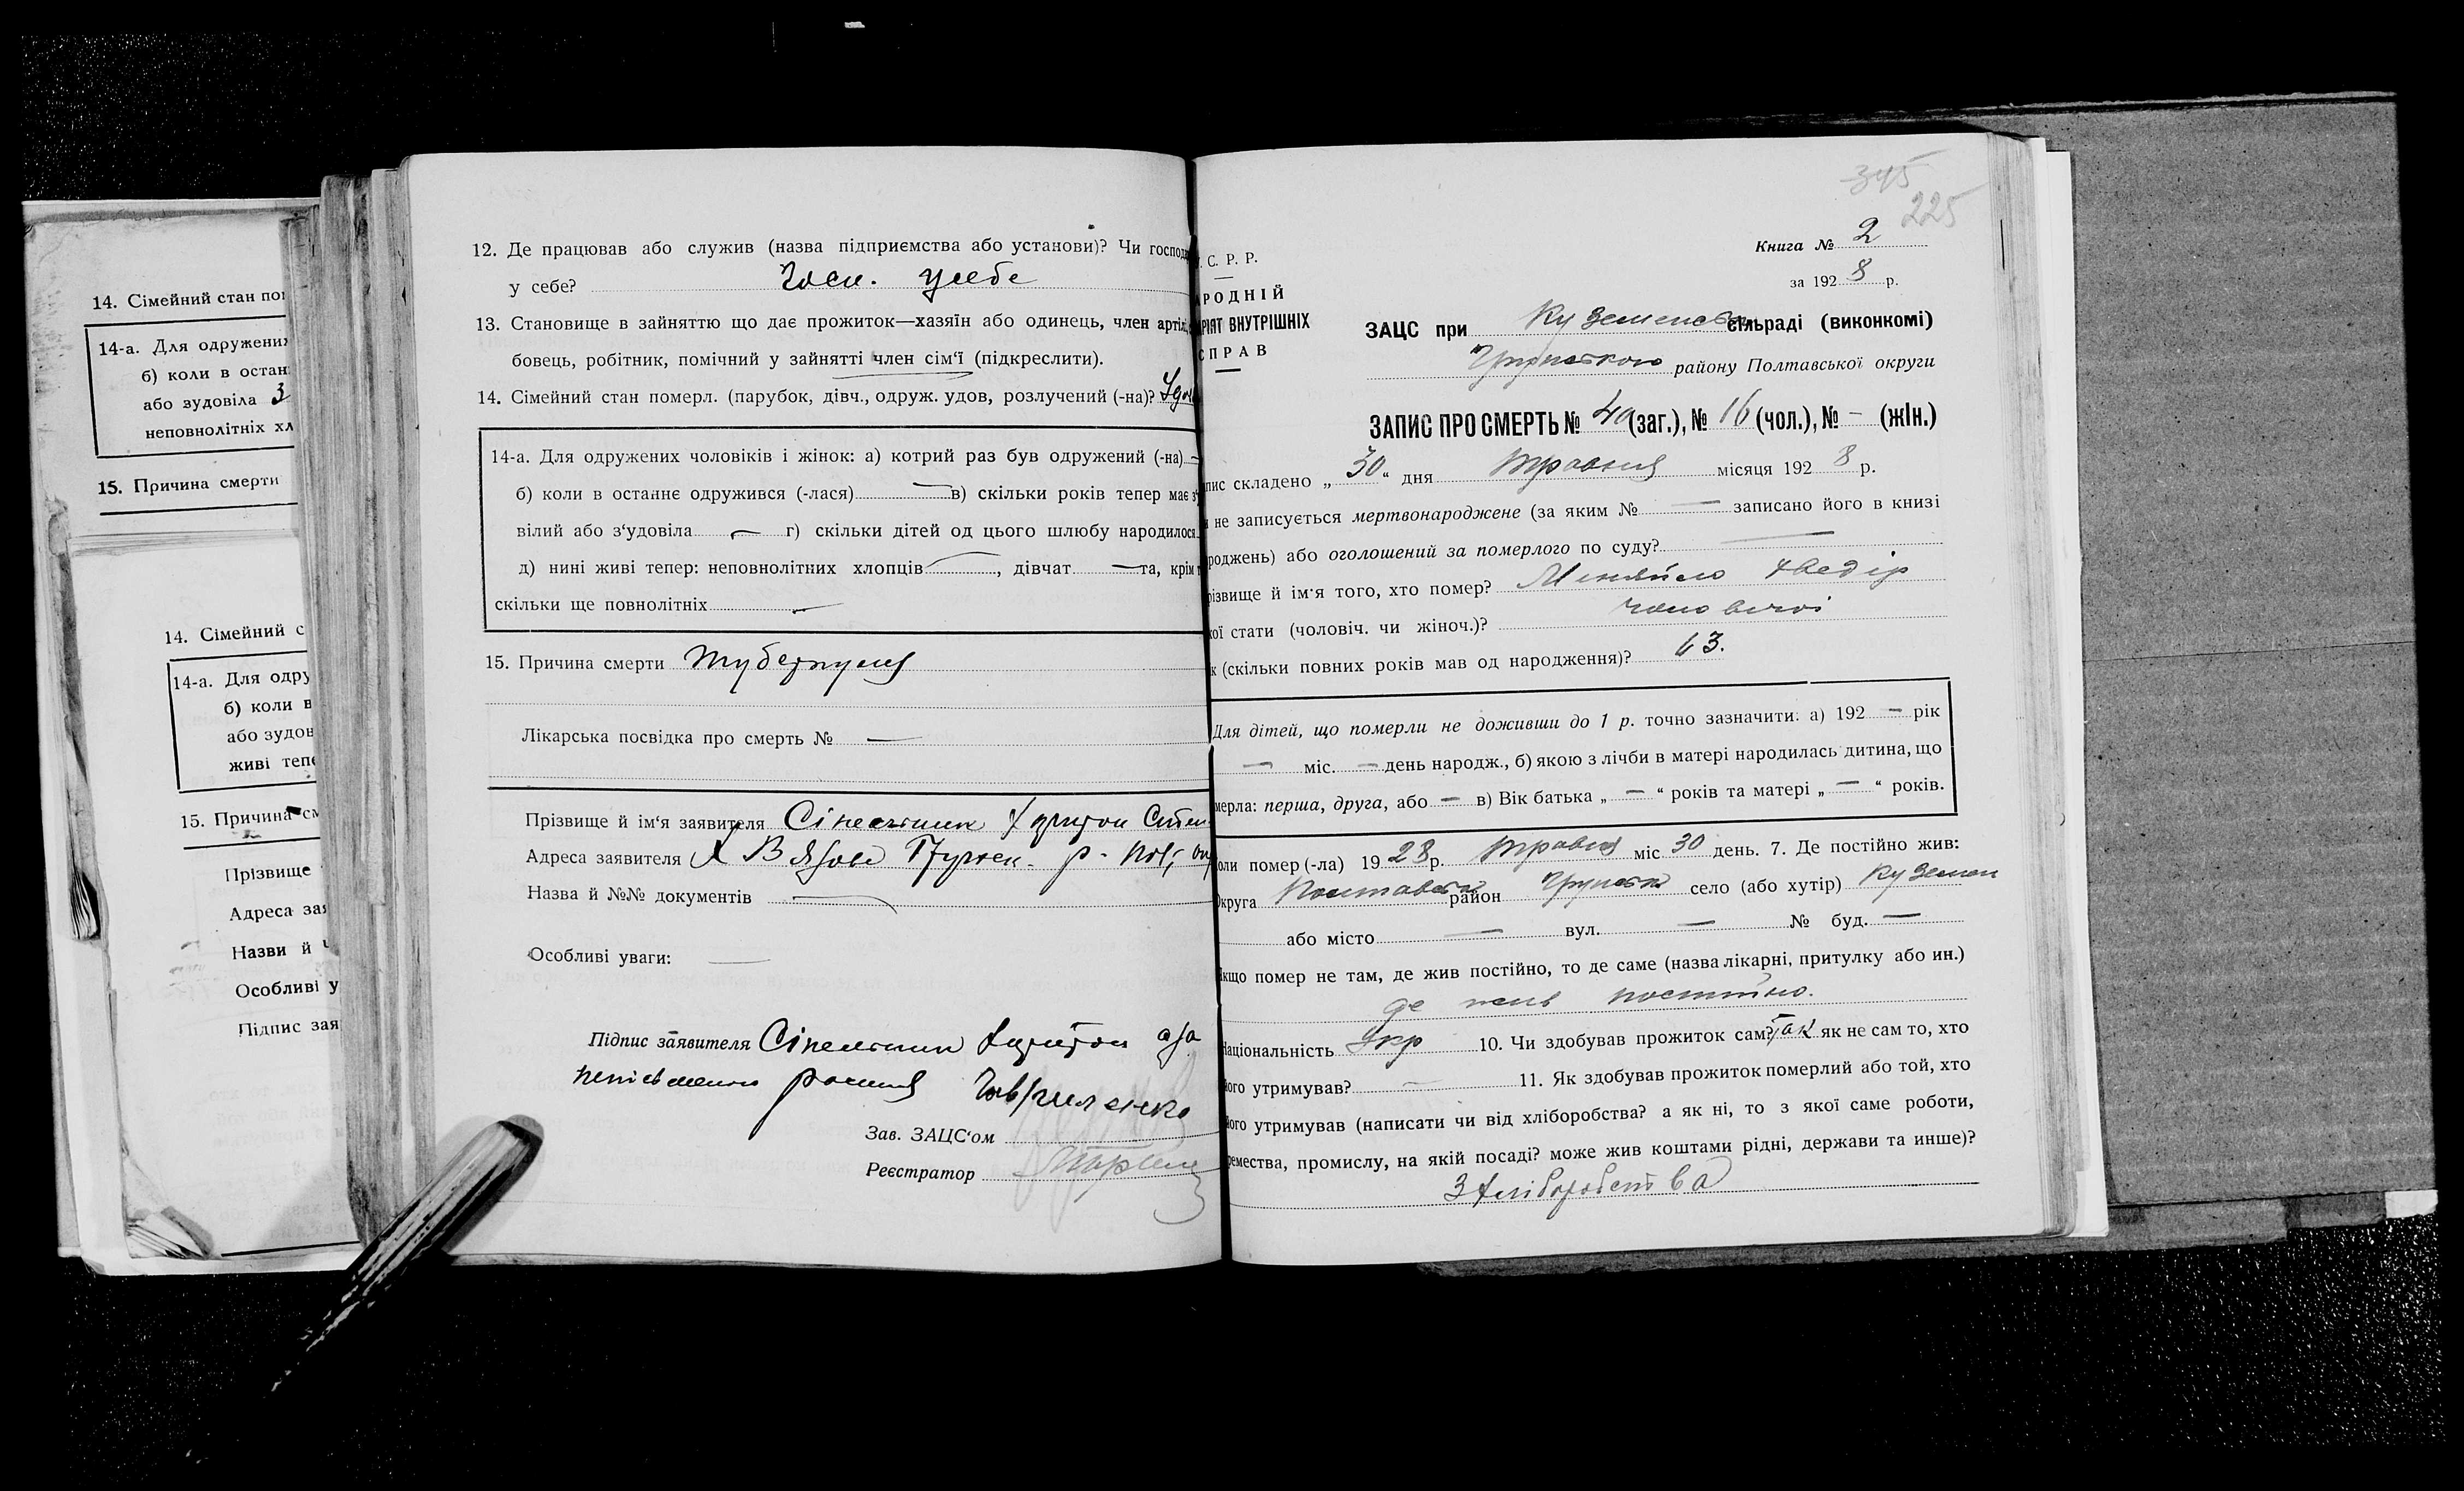 14. Сімейний стан по
14-а. Для одружених
б) коли в остан
або зудовіла 3
неповнолітніх хл
15. Причина смерти
14. Сімейний с
14-а. Для одру
б) коли в
або зудов
живі теп
15. Причина см
Прізвище
Адреса зая
Назви й
Особливі у
Підпис зая
12. Де працював або служив (назва підприємства або установи)? Чи господ
у себе? Госп. у себе
13. Становище в зайняттю що дає прожиток—хазяїн або одинець, член артіл
бовець, робітник, помічний у зайнятті член сім'ї (підкреслити).
14. Сімейний стан померл. (парубок, дівч., одруж. удов, розлучений (-на)?
14-а. Для одружених чоловіків і жінок: а) котрий раз був одружений (-на) —
б) коли в останнє одружився (-лася) — в) скільки років тепер має з'
вілий або з'удовіла — г) скільки дітей од цього шлюбу народилося
д) нині живі тепер: неповнолітних хлопців —, дівчат — та, крім т
скільки ще повнолітніх —
15. Причина смерти туберкульоз
Лікарська посвідка про смерть № —
Прізвище й ім'я заявителя Сінельник Харитон Степ
Адреса заявителя Х В Язове Грунск. р. Пол; ок
Назва й №№ документів —
Особливі уваги: —
Підпис заявителя Сінельник Харитон а за
неписьменого росписався Гавриленко
Зав. ЗАЦС'ом
Реєстратор
345
225
Книга № 2
за 192 8 р.
. С. Р. Р.
АРОДНІЙ
РІЯТ ВНУТРІШНІХ
СПРАВ
ЗАЦС при Куземенськ сільраді (виконкомі)
Грунського району Полтавської округи
ЗАПИС ПРО СМЕРТЬ № 40 (заг.), № 16 (чол.), № — (жін.)
пис складено „30“ дня травня місяця 192 8 р.
и не записується мертвонароджене (за яким № — записано його в книзі
роджень) або оголошений за померлого по суду? —
різвище й ім'я того, хто помер? Миняйло Хведір
кої стати (чоловіч. чи жіноч.)? чоловічої
к (скільки повних років мав од народження)? 63.
Для дітей, що померли не доживши до 1 р. точно зазначити: а) 192 — рік
— міс. — день народж., б) якою з лічби в матері народилась дитина, що
мерла: перша, друга, або — в) Вік батька „ — “ років та матері „ — “ років.
оли помер (-ла) 19 28 р. травня міс 30 день. 7. Де постійно жив:
Округа Полтавськ район Грунськ село (або хутір) Куземен
або місто — вул. — № буд. —
якщо помер не там, де жив постійно, то де саме (назва лікарні, притулку або ин.)
де жив постійно.
Національність Укр 10. Чи здобував прожиток сам? Так як не сам то, хто
його утримував? — 11. Як здобував прожиток померлий або той, хто
його утримував (написати чи від хліборобства? а як ні, то з якої саме роботи,
ремества, промислу, на якій посаді? може жив коштами рідні, держави та инше)?
З хліборобства